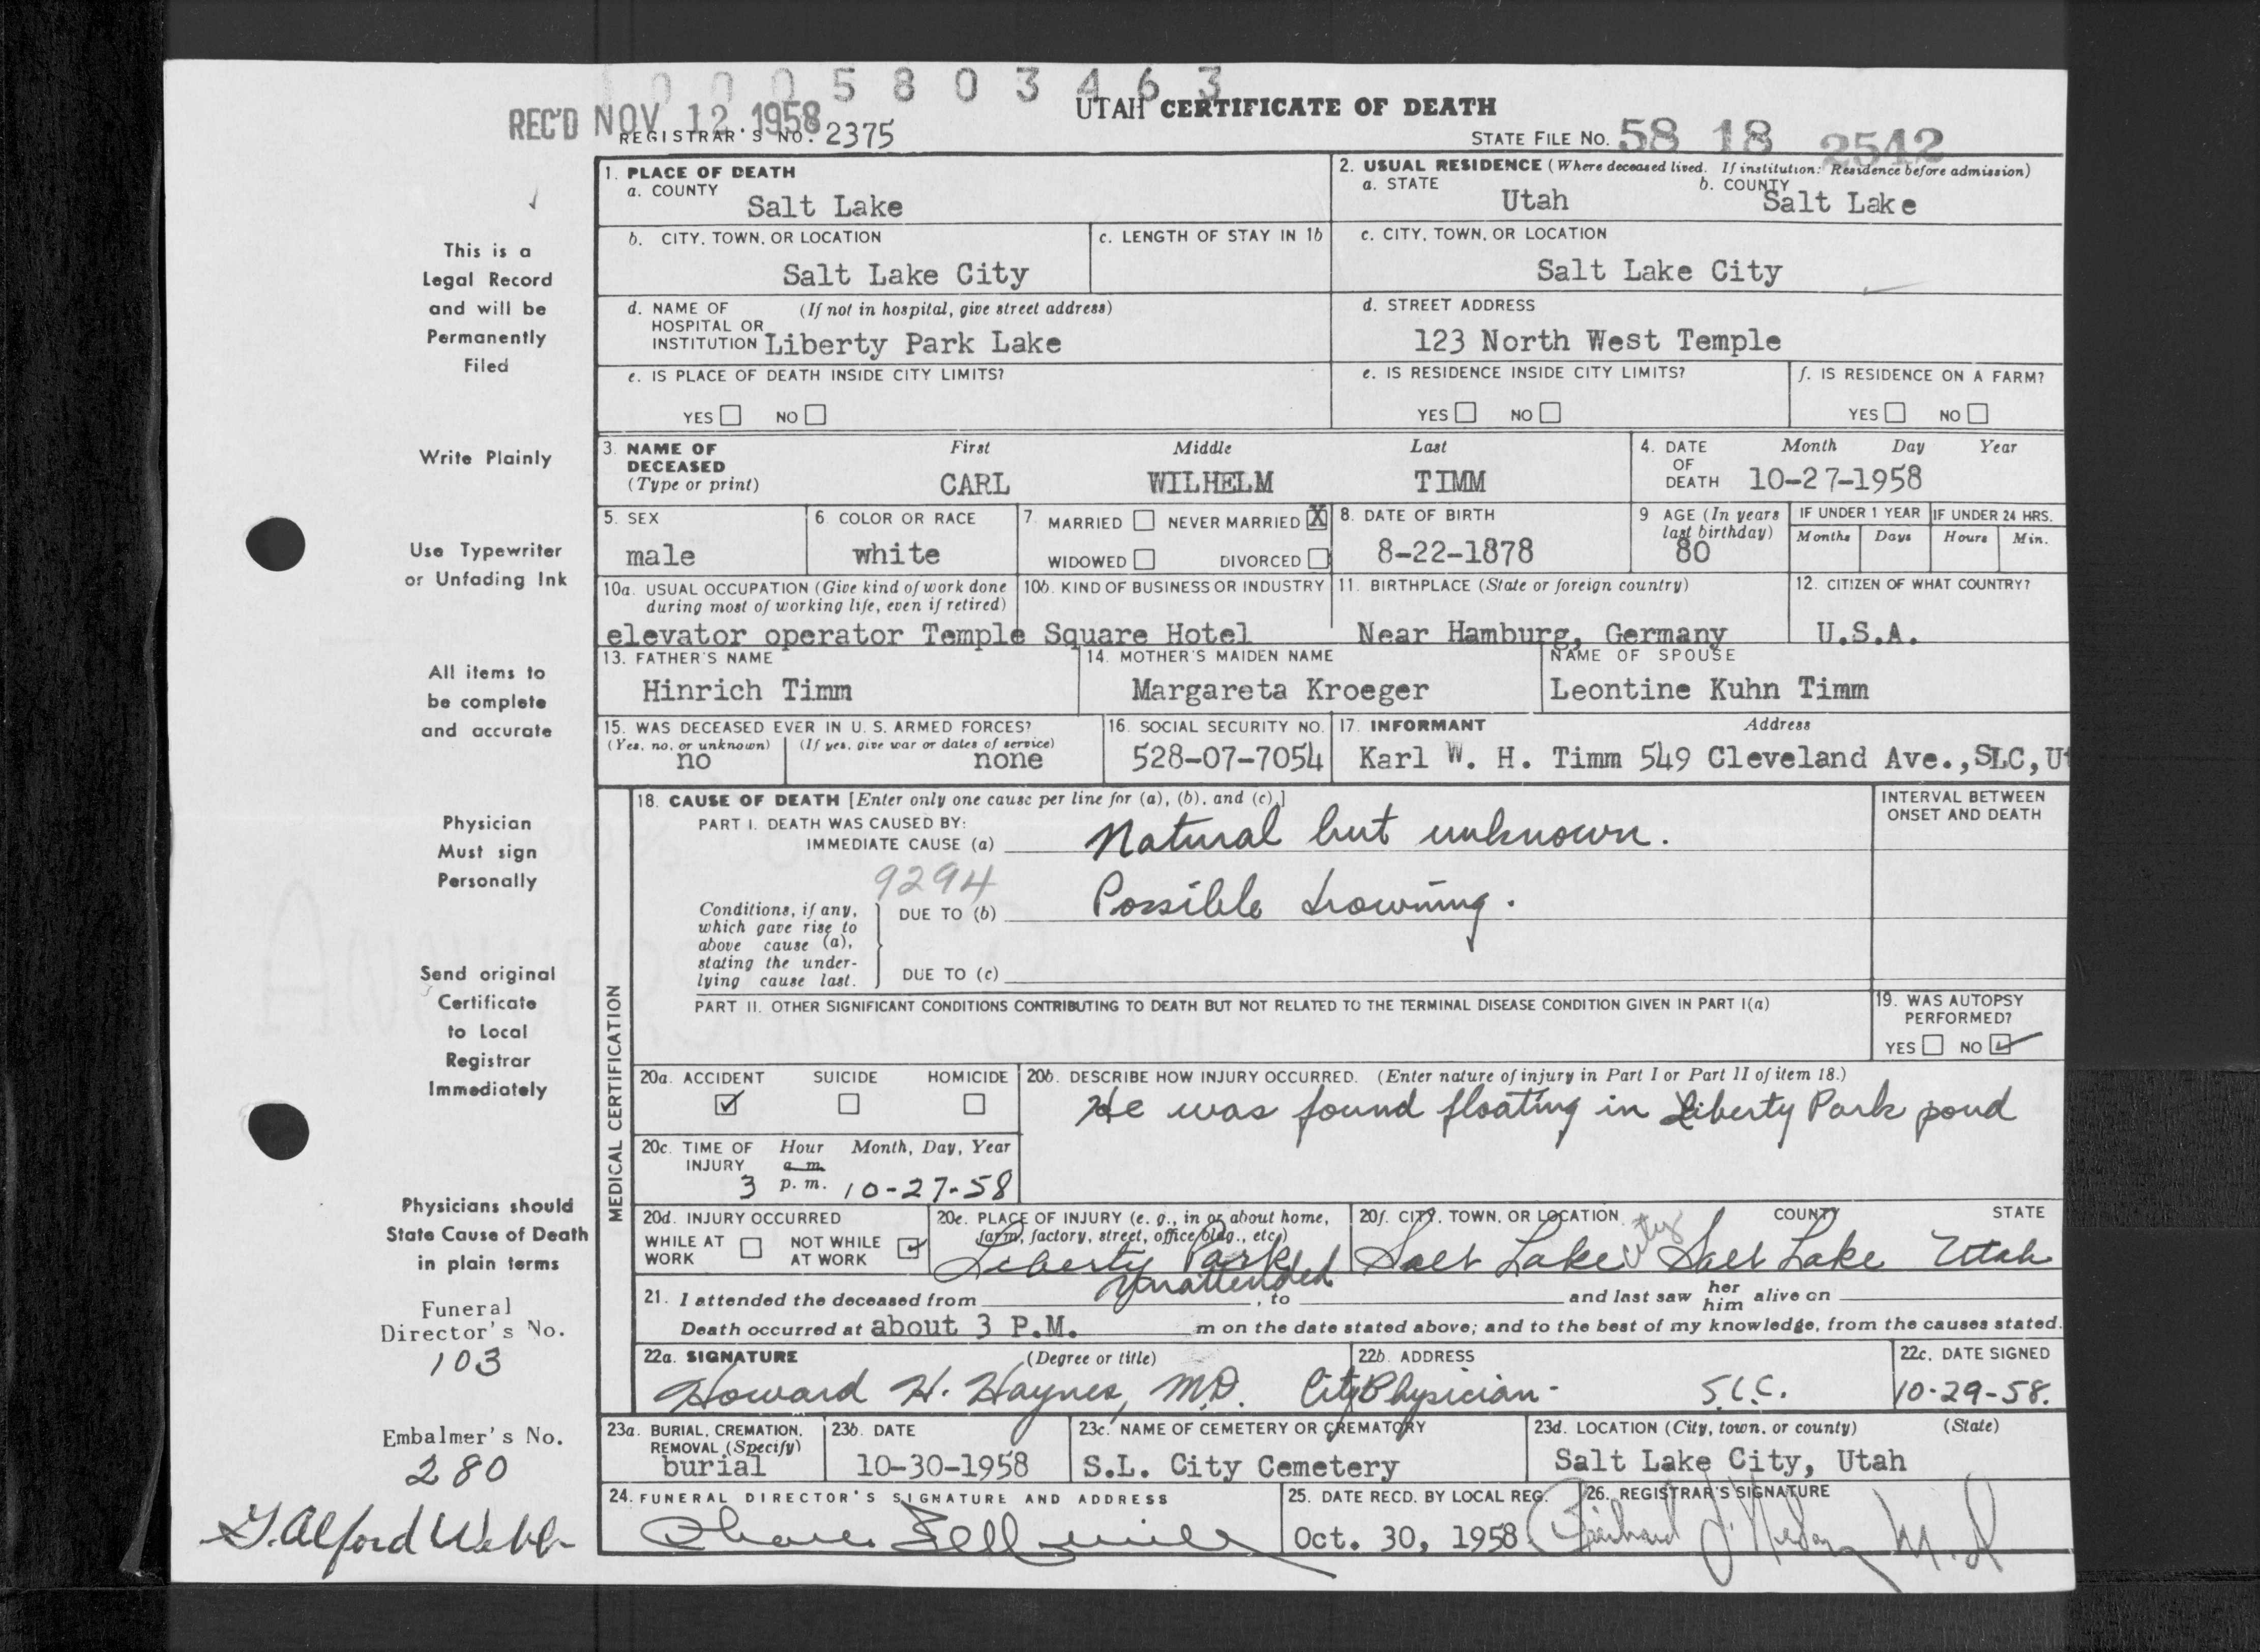 0 0 0 5 8 0 3 4 6 3
REC'D NOV 12 1958
UTAH CERTIFICATE OF DEATH
REGISTRAR'S NO. 2375
STATE FILE NO. 58 18 2542
1. PLACE OF DEATH
a. COUNTY
Salt Lake
2. USUAL RESIDENCE (Where deceased lived. If institution: Residence before admission)
a. STATE
Utah
b. COUNTY
Salt Lake
b. CITY, TOWN, OR LOCATION
Salt Lake City
c. LENGTH OF STAY IN 1b
c. CITY, TOWN, OR LOCATION
Salt Lake City
d. NAME OF (If not in hospital, give street address)
HOSPITAL OR
INSTITUTION Liberty Park Lake
d. STREET ADDRESS
123 North West Temple
e. IS PLACE OF DEATH INSIDE CITY LIMITS?
YES NO
e. IS RESIDENCE INSIDE CITY LIMITS?
YES NO
f. IS RESIDENCE ON A FARM?
YES NO
3. NAME OF
DECEASED
(Type or print)
First Middle Last
CARL WILHELM TIMM
4. DATE
OF
DEATH
Month Day Year
10-27-1958
5. SEX
male
6. COLOR OR RACE
white
7. MARRIED NEVER MARRIED X
WIDOWED DIVORCED
8. DATE OF BIRTH
8-22-1878
9 AGE (In years
last birthday)
80
IF UNDER 1 YEAR
Months Days
IF UNDER 24 HRS.
Hours Min.
10a. USUAL OCCUPATION (Give kind of work done
during most of working life, even if retired)
10b. KIND OF BUSINESS OR INDUSTRY
elevator operator Temple Square Hotel
11. BIRTHPLACE (State or foreign country)
Near Hamburg, Germany
12. CITIZEN OF WHAT COUNTRY?
U.S.A.
13. FATHER'S NAME
Hinrich Timm
14. MOTHER'S MAIDEN NAME
Margareta Kroeger
NAME OF SPOUSE
Leontine Kuhn Timm
15. WAS DECEASED EVER IN U. S. ARMED FORCES?
(Yes, no, or unknown) (If yes, give war or dates of service)
no none
16. SOCIAL SECURITY NO.
528-07-7054
17. INFORMANT Address
Karl W. H. Timm 549 Cleveland Ave., SLC, Ut
MEDICAL CERTIFICATION
18. CAUSE OF DEATH [Enter only one cause per line for (a), (b), and (c).]
PART I. DEATH WAS CAUSED BY:
IMMEDIATE CAUSE (a) Natural but unknown.
9294
Conditions, if any,
which gave rise to
above cause (a),
stating the under-
lying cause last.
DUE TO (b) Possible drowning.
DUE TO (c)
INTERVAL BETWEEN
ONSET AND DEATH
PART II. OTHER SIGNIFICANT CONDITIONS CONTRIBUTING TO DEATH BUT NOT RELATED TO THE TERMINAL DISEASE CONDITION GIVEN IN PART I(a)
19. WAS AUTOPSY
PERFORMED?
YES NO
20a. ACCIDENT SUICIDE HOMICIDE
20b. DESCRIBE HOW INJURY OCCURRED. (Enter nature of injury in Part I or Part II of item 18.)
He was found floating in Liberty Park pond
20c. TIME OF Hour Month, Day, Year
INJURY a. m.
3 p. m. 10-27-58
20d. INJURY OCCURRED
WHILE AT
WORK
NOT WHILE
AT WORK
20e. PLACE OF INJURY (e. g., in or about home,
farm, factory, street, office bldg., etc.)
Liberty Park
20f. CITY, TOWN, OR LOCATION COUNTY STATE
Salt Lake City Salt Lake Utah
21. I attended the deceased from Unattended, to and last saw her him alive on
Death occurred at about 3 P.M. m on the date stated above; and to the best of my knowledge, from the causes stated.
22a. SIGNATURE (Degree or title)
Howard H. Haynes, M.D. City Physician-
22b. ADDRESS
S.L.C.
22c. DATE SIGNED
10-29-58.
23a. BURIAL, CREMATION,
REMOVAL (Specify)
burial
23b. DATE
10-30-1958
23c. NAME OF CEMETERY OR CREMATORY
S.L. City Cemetery
23d. LOCATION (City, town, or county) (State)
Salt Lake City, Utah
24. FUNERAL DIRECTOR'S SIGNATURE AND ADDRESS
25. DATE RECD. BY LOCAL REG.
Oct. 30, 1958
26. REGISTRAR'S SIGNATURE
M.D
This is a
Legal Record
and will be
Permanently
Filed
Write Plainly
Use Typewriter
or Unfading Ink
All items to
be complete
and accurate
Physician
Must sign
Personally
Send original
Certificate
to Local
Registrar
Immediately
Physicians should
State Cause of Death
in plain terms
Funeral
Director's No.
103
Embalmer's No.
280
G. Alford Webb